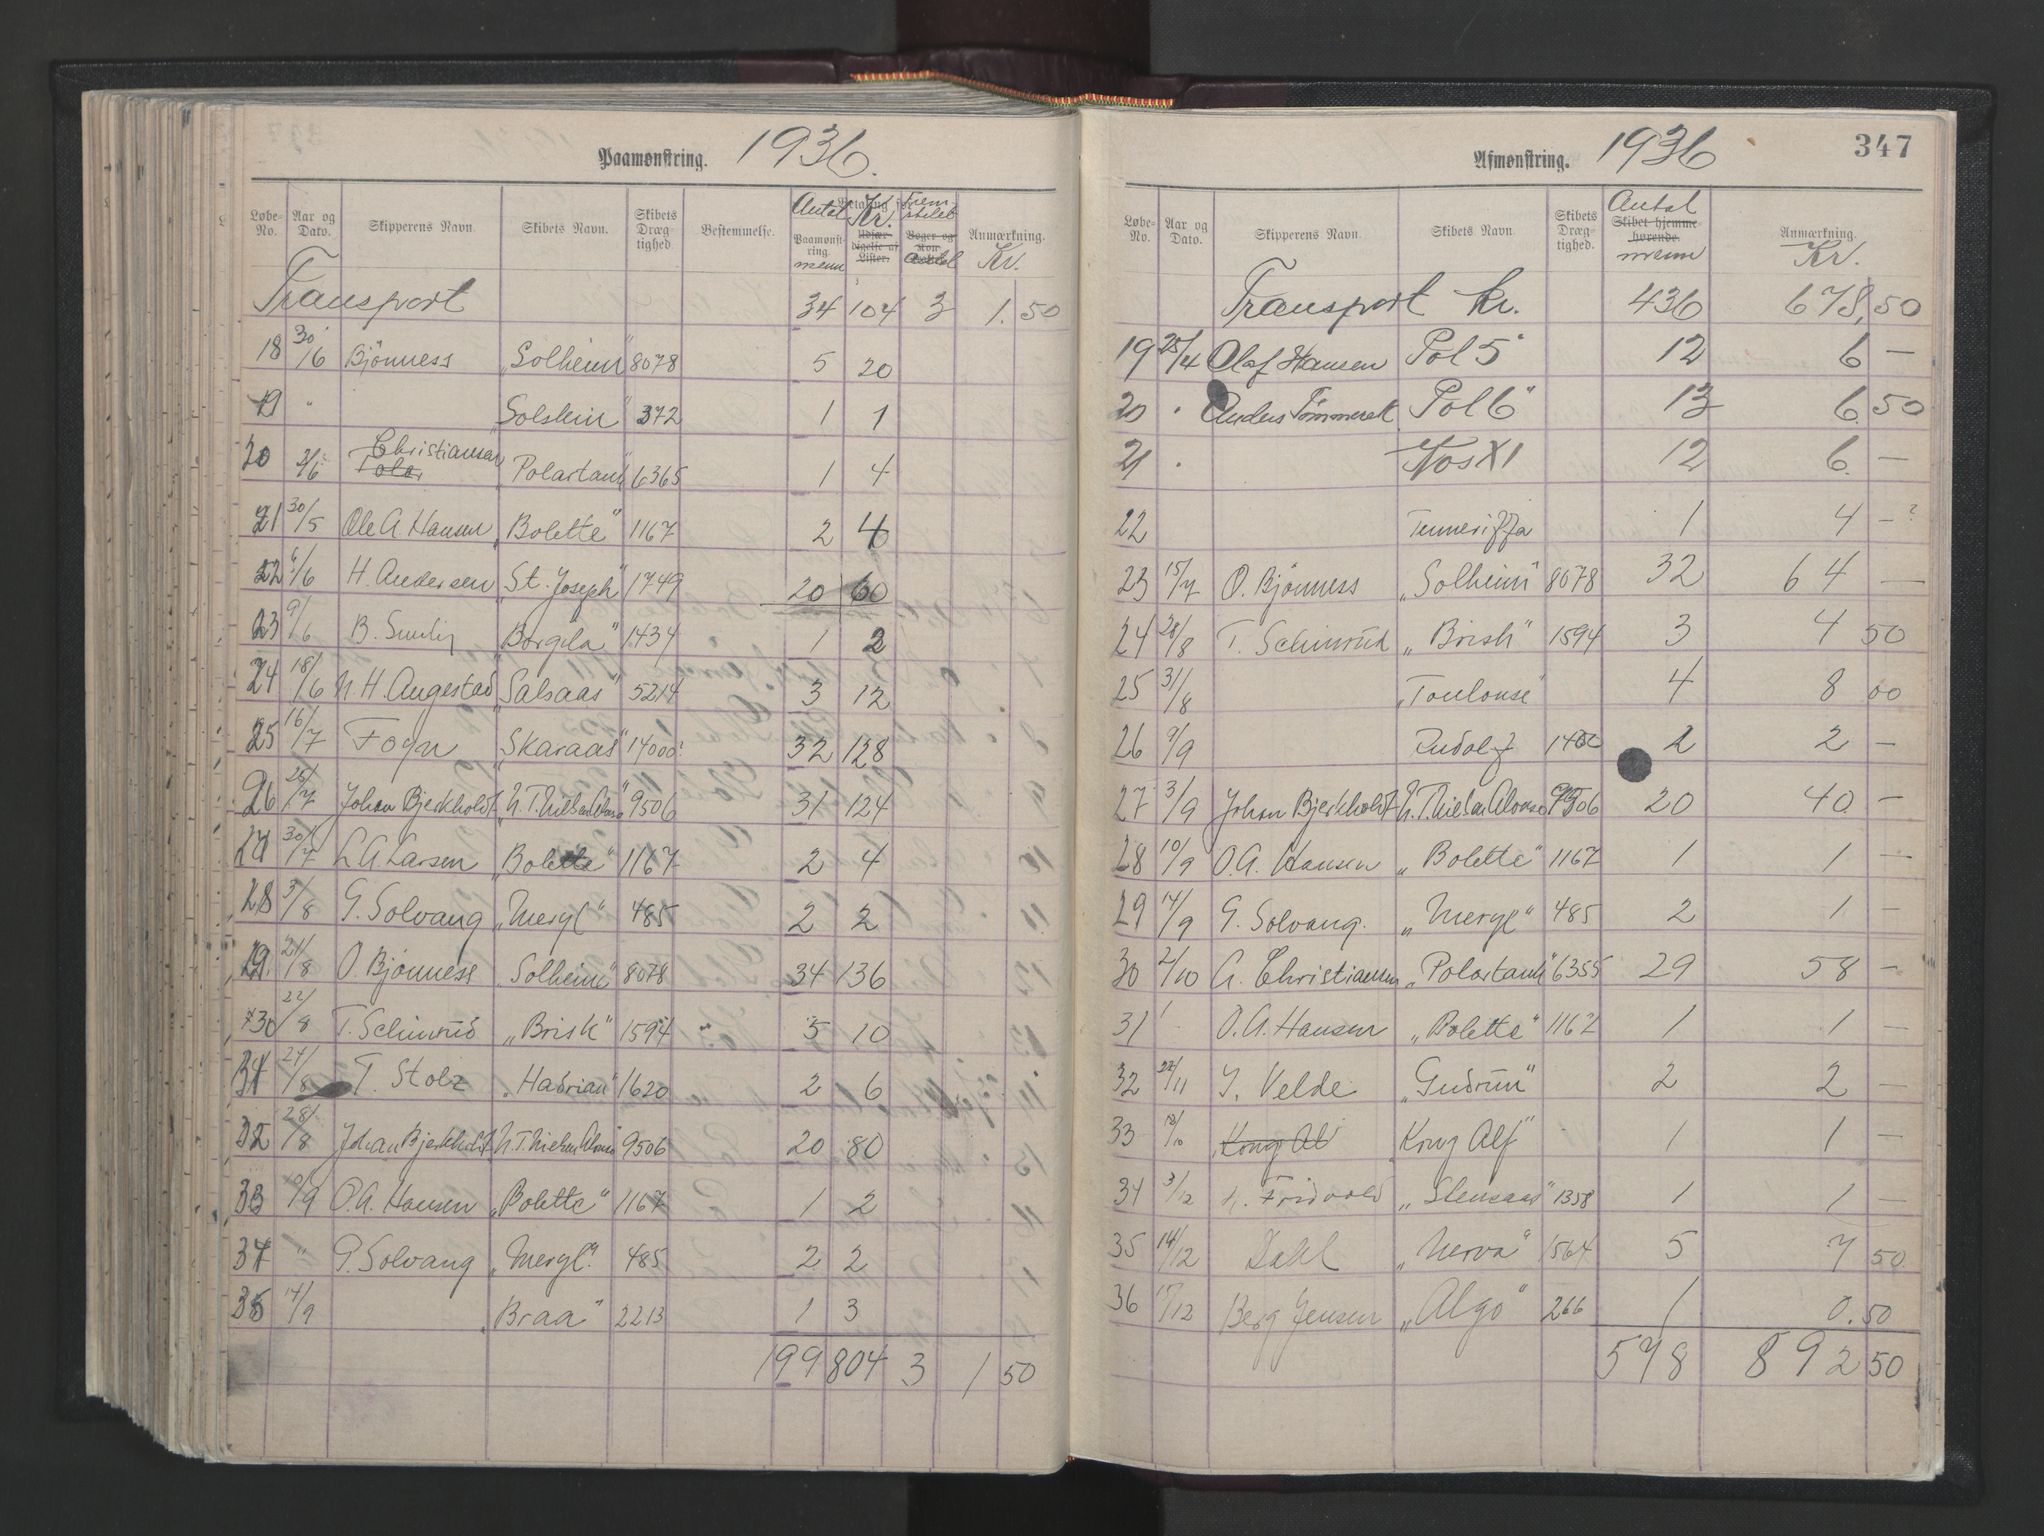 Paamønstring. 1936.
Løbe-No. Aar og Dato. Skipperens Navn. Skibets Navn. Skibets Dræg-tighed. Bestemmelse. Antal Paamønst-ring. menn Kr. Anmærkning. Kr.
Transport 34 104 3 1.50
18 30/6 Bjönness „Solheim" 8078 5 20
19 " „Solstein" 372 1 1
20 2/6 Christiansen „Polartank" 6365 1 4
21 30/5 Ole A. Hansen „Bolette" 1167 2 4
22 6/6 H. Andersen „St. Joseph" 1749 20 60
23 9/6 B. „Borgila" 1434 1 2
24 18/6 N. H. Augestad „Salsaas" 5214 3 12
25 16/7 Fogn „Skaraas" 14000? 32 128
26 25/7 Johan Bjerkholdt „N.T. Nielsen Alonso" 9506 31 124
27 30/7 L A Larsen „Bolette" 1167 2 4
28 3/8 G. Solvang „Meryl" 485 2 2
29. 21/8 O. Bjönness „Solheim" 8078 34 136
30 22/8 T. Schinrud „Brisk" 1594 " 5 10
31 24/8 T. Stolz „Hadrian" 1620 2 6
32 28/8 Johan Bjerkholdt N.T. Nielsen Alonso 9506 20 80
33 10/9 O.A. Hansen „Bolette" 1167 1 2
34 " G. Solvang „Meryl". 485 2 2
35 14/9 „Braa" 2213 1 3
199 804 3 1 50
Afmønstring. 1936 347
Løbe-No. Aar og Dato. Skipperens Navn. Skibets Navn. Skibets Dræg-tighed. Antal Skibet hjemme-hørende. menn Anmærkning. Kr.
Transport kr. 436 678,50
19 25/4 Olaf Hansen Pol 5 12 6 —
20 " Anders Tömmerek Pol 6" 13 6.50
21 " Kos XI 12 6. —
22 Tenneriffa 1 4 — ?
23 15/7 O. Bjönness „Solheim" 8078 32 64 —
24 28/8 T. Schinrud „Brisk" 1594 3 4 50
25 31/8 „Toulouse" 4 8 00
26 9/9 Rudolf 1400 2 2 —
27 3/9 Johan Bjerkholdt N.T. Nielsen Alonso 9506 20 40. —
28 10/9 O.A. Hansen „Bolette" 1167 1 1 —
29 14/9 G. Solvang. „Meryl" 485 2 1 —
30 2/10 A. Christiansen „Polartank" 6355 29 58 —
31 O.A. Hansen „Bolette" 1167 1 1 —
32 22/11 J. Velde „Gudrun" 2 2 —
33 12/10 Kong Al Kong Alf" 1 1 —
34 3/12 Fridvold „Stensaas" 1358 1 1 —
35 14/12 Dahl „Nerva" 1564 5 7 50
36 17/12 Berg Jensen „Algo" 266 1 0.50
578 892 50